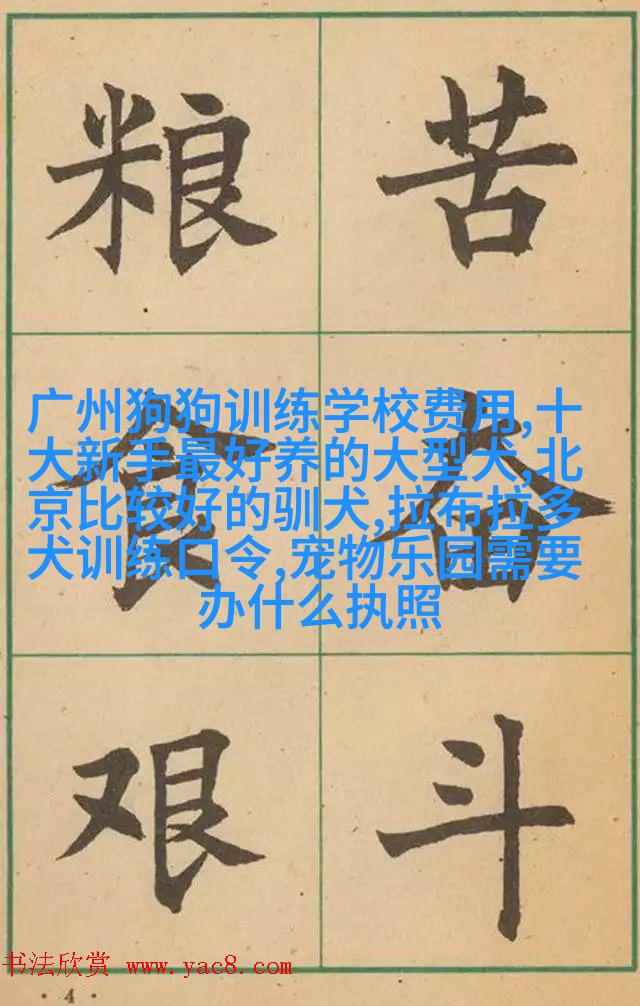 粮食艰
苦奋斗
广州狗狗训练学校费用,十
大新手最好养的大型犬,北
京比较好的驯犬,拉布拉多
犬训练口令,宠物乐园需要
办什么执照
书法欣赏 www.yac8.com
· 4 ·